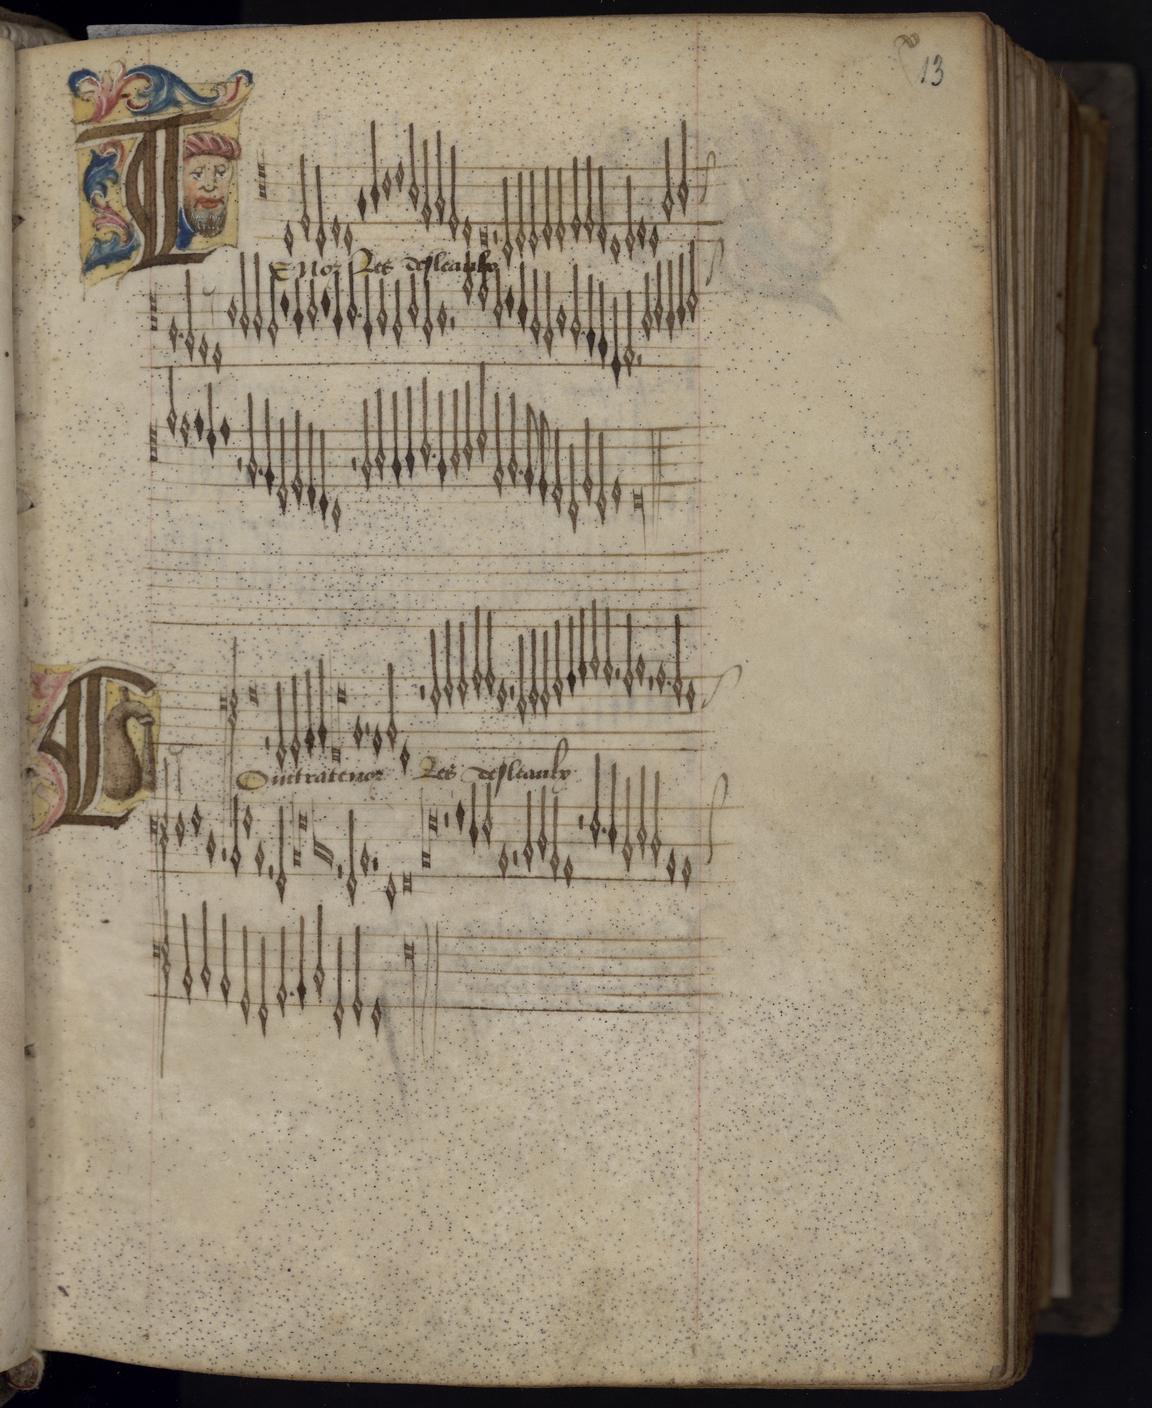 13
Tenor Les desleaulx
Contratenor Les desleaulx